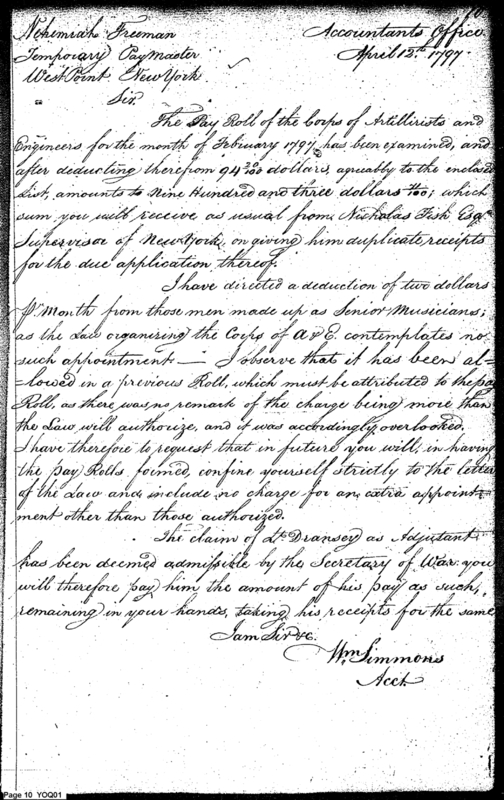 Nehemiah Freeman Accountants Office
Temporary Paymaster April 12th 1797.
West Point New York
Sir,
The Pay Roll of the Corps of Artillirists and
Engineers for the month of Febiuary 1797 has been examined, and
after deducting therefrom 94 20/100 dollars, agreeably to the enclosed
List, amounts to Nine Hundred and three dollars /100; which
sum you will receive as usual from Nicholas Fish Esqr
Supervisor of New York, on giving him duplicate receipts
for the due application thereof.
I have directed a deduction of two dollars
Pr Month from those men made up as Senior Musicians;
as the Law organizing the Corps of A & E. contemplates no
such appointment — I observe that it has been al=
=lowed in a previous Roll, which must be attributed to the pay
Roll, as there was no remark of the charge being more than
the Law will authorize, and it was accordingly overlooked.
I have therefore to request that in future you will, in having
the pay Rolls formed, confine yourself strictly to the letter
of the Law and include no charge for an extra appoint=
ment other than those authorized.
The claim of Lt Dransey as Adjutant
has been deemed admissible by the Secretary of War: you
will therefore pay him the amount of his pay as such,
remaining in your hands, taking his receipts for the same
I am Sir &c.
Wm Simmons
Acct.
Page 10 YOQ01